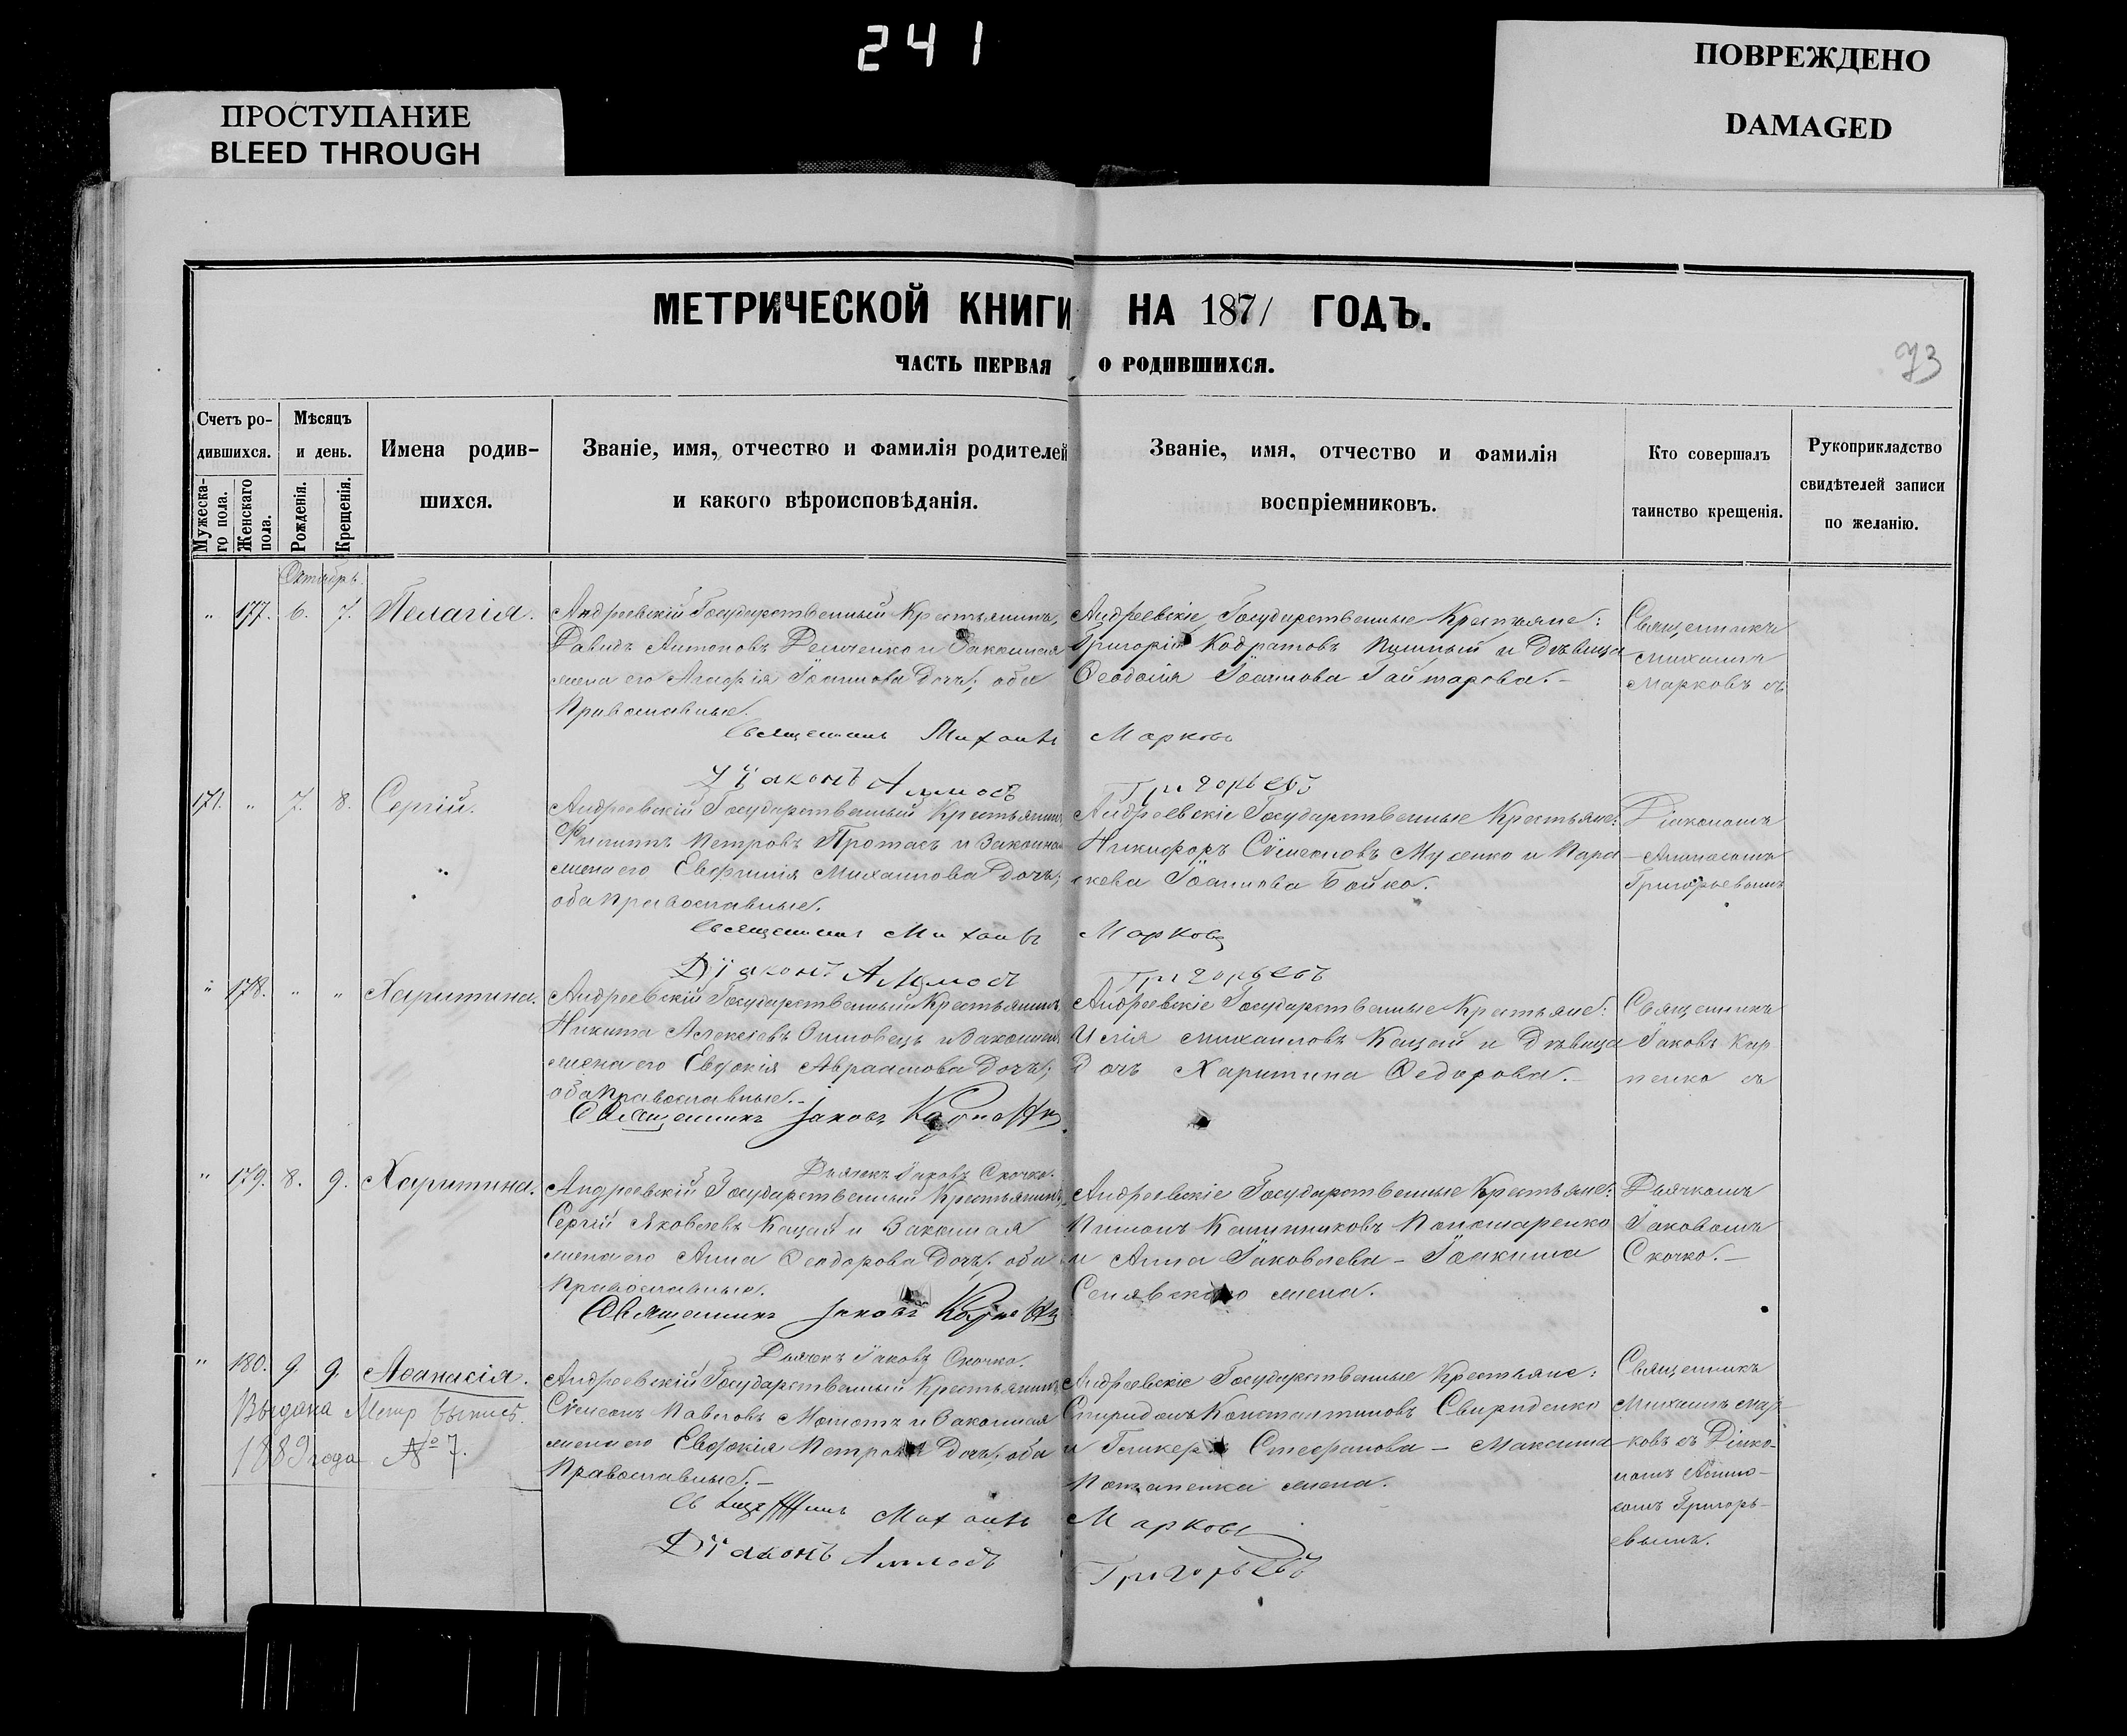 241
ПРОСТУПАНИЕ
BLEED THROUGH
ПОВРЕЖДЕНО
DAMAGED
МЕТРИЧЕСКОЙ КНИГИ НА 1871 ГОДЪ.
ЧАСТЬ ПЕРВАЯ О РОДИВШИХСЯ.
73
Счетъ ро-
дившихся.
Мужеска-
го пола.
Женскаго
пола.
Мѣсяцъ
и день.
Рожденія.
Крещенія.
Имена родив-
шихся.
Званіе, имя, отчество и фамилія родителей
и какого вѣроисповѣданія.
Званіе, имя, отчество и фамилія
воспріемниковъ.
Кто совершалъ
таинство крещенія.
Рукоприкладство
свидѣтелей записи
по желанію.
Октябрь.
" 177. 6. 7. Пелагія.
Андреевскій Государственный Крестьянинъ,
Давидъ Антоновъ и Законная
жена его Агафія Іоаннова Дочь; оба
Православные.
Андреевскіе Государственные Крестьяне:
Григорій Кодратовъ и Дѣвица
Ѳеодосія Іоаннова Гайтарова.-
Священникъ
Михаилъ
Марковъ съ
Священникъ Михаилъ Марковъ
Діаконъ Григорьевъ
171. " 7. 8. Сергій.
Андреевскій Государственный Крестьянинъ
Филиппъ Петровъ Протасъ и Законная
жена его Евфимія Михаилова Дочь;
оба Православные.
Андреевскіе Государственные Крестьяне:
Никифоръ Сѵмеоновъ и Пара
скева Іоаннова Бойко.
Діакономъ
Григорьевымъ
Священникъ Михаилъ Марковъ
Діаконъ Григорьевъ
" 178. " " Харитина.
Андреевскій Государственный Крестьянинъ
Никита Алексѣевъ Зимовецъ и Законная
жена его Евдокія Авраамова Дочь;
оба Православные.-
Андреевскіе Государственные Крестьяне:
Илія Михаиловъ Кацай и Дѣвица
Дочь Харитина Ѳедорова.-
Священникъ
Іаковъ Кар-
пенко съ
Священникъ Іаковъ Карпенко
Дьячекъ Іаковъ Скочко.
" 179. 8. 9. Харитина.
Андреевскій Государственный Крестьянинъ,
Сергій Яковлевъ Кацай и Законная
жена его Анна Ѳеодорова Дочь; оба
Православные.
Андреевскіе Государственные Крестьяне:
Пимонъ Калинниковъ Пономаренко
и Анна Іаковлева - Іоакима
Сенявскаго жена.
Дьячкомъ
Іаковомъ
Скочко.-
Священникъ Іаковъ Карпенко
Дьячекъ Іаковъ Скочко.
" 180. 9. 9. Аѳанасія.
Выдана Метр выпись
1889 года № 7.
Андреевскій Государственный Крестьянинъ
Сѵмеонъ Павловъ и Законная
жена его Евдокія Петрова Дочь; оба
Православные.-
Андреевскіе Государственные Крестьяне:
Спиридонъ Константиновъ Свириденко
и Гликерія Стефанова - Максима
Потапенка жена.
Священникъ
Михаилъ Мар-
ковъ съ Діако-
номъ
Григорь-
евымъ.
Священникъ Михаилъ Марковъ
Діаконъ Григорьевъ